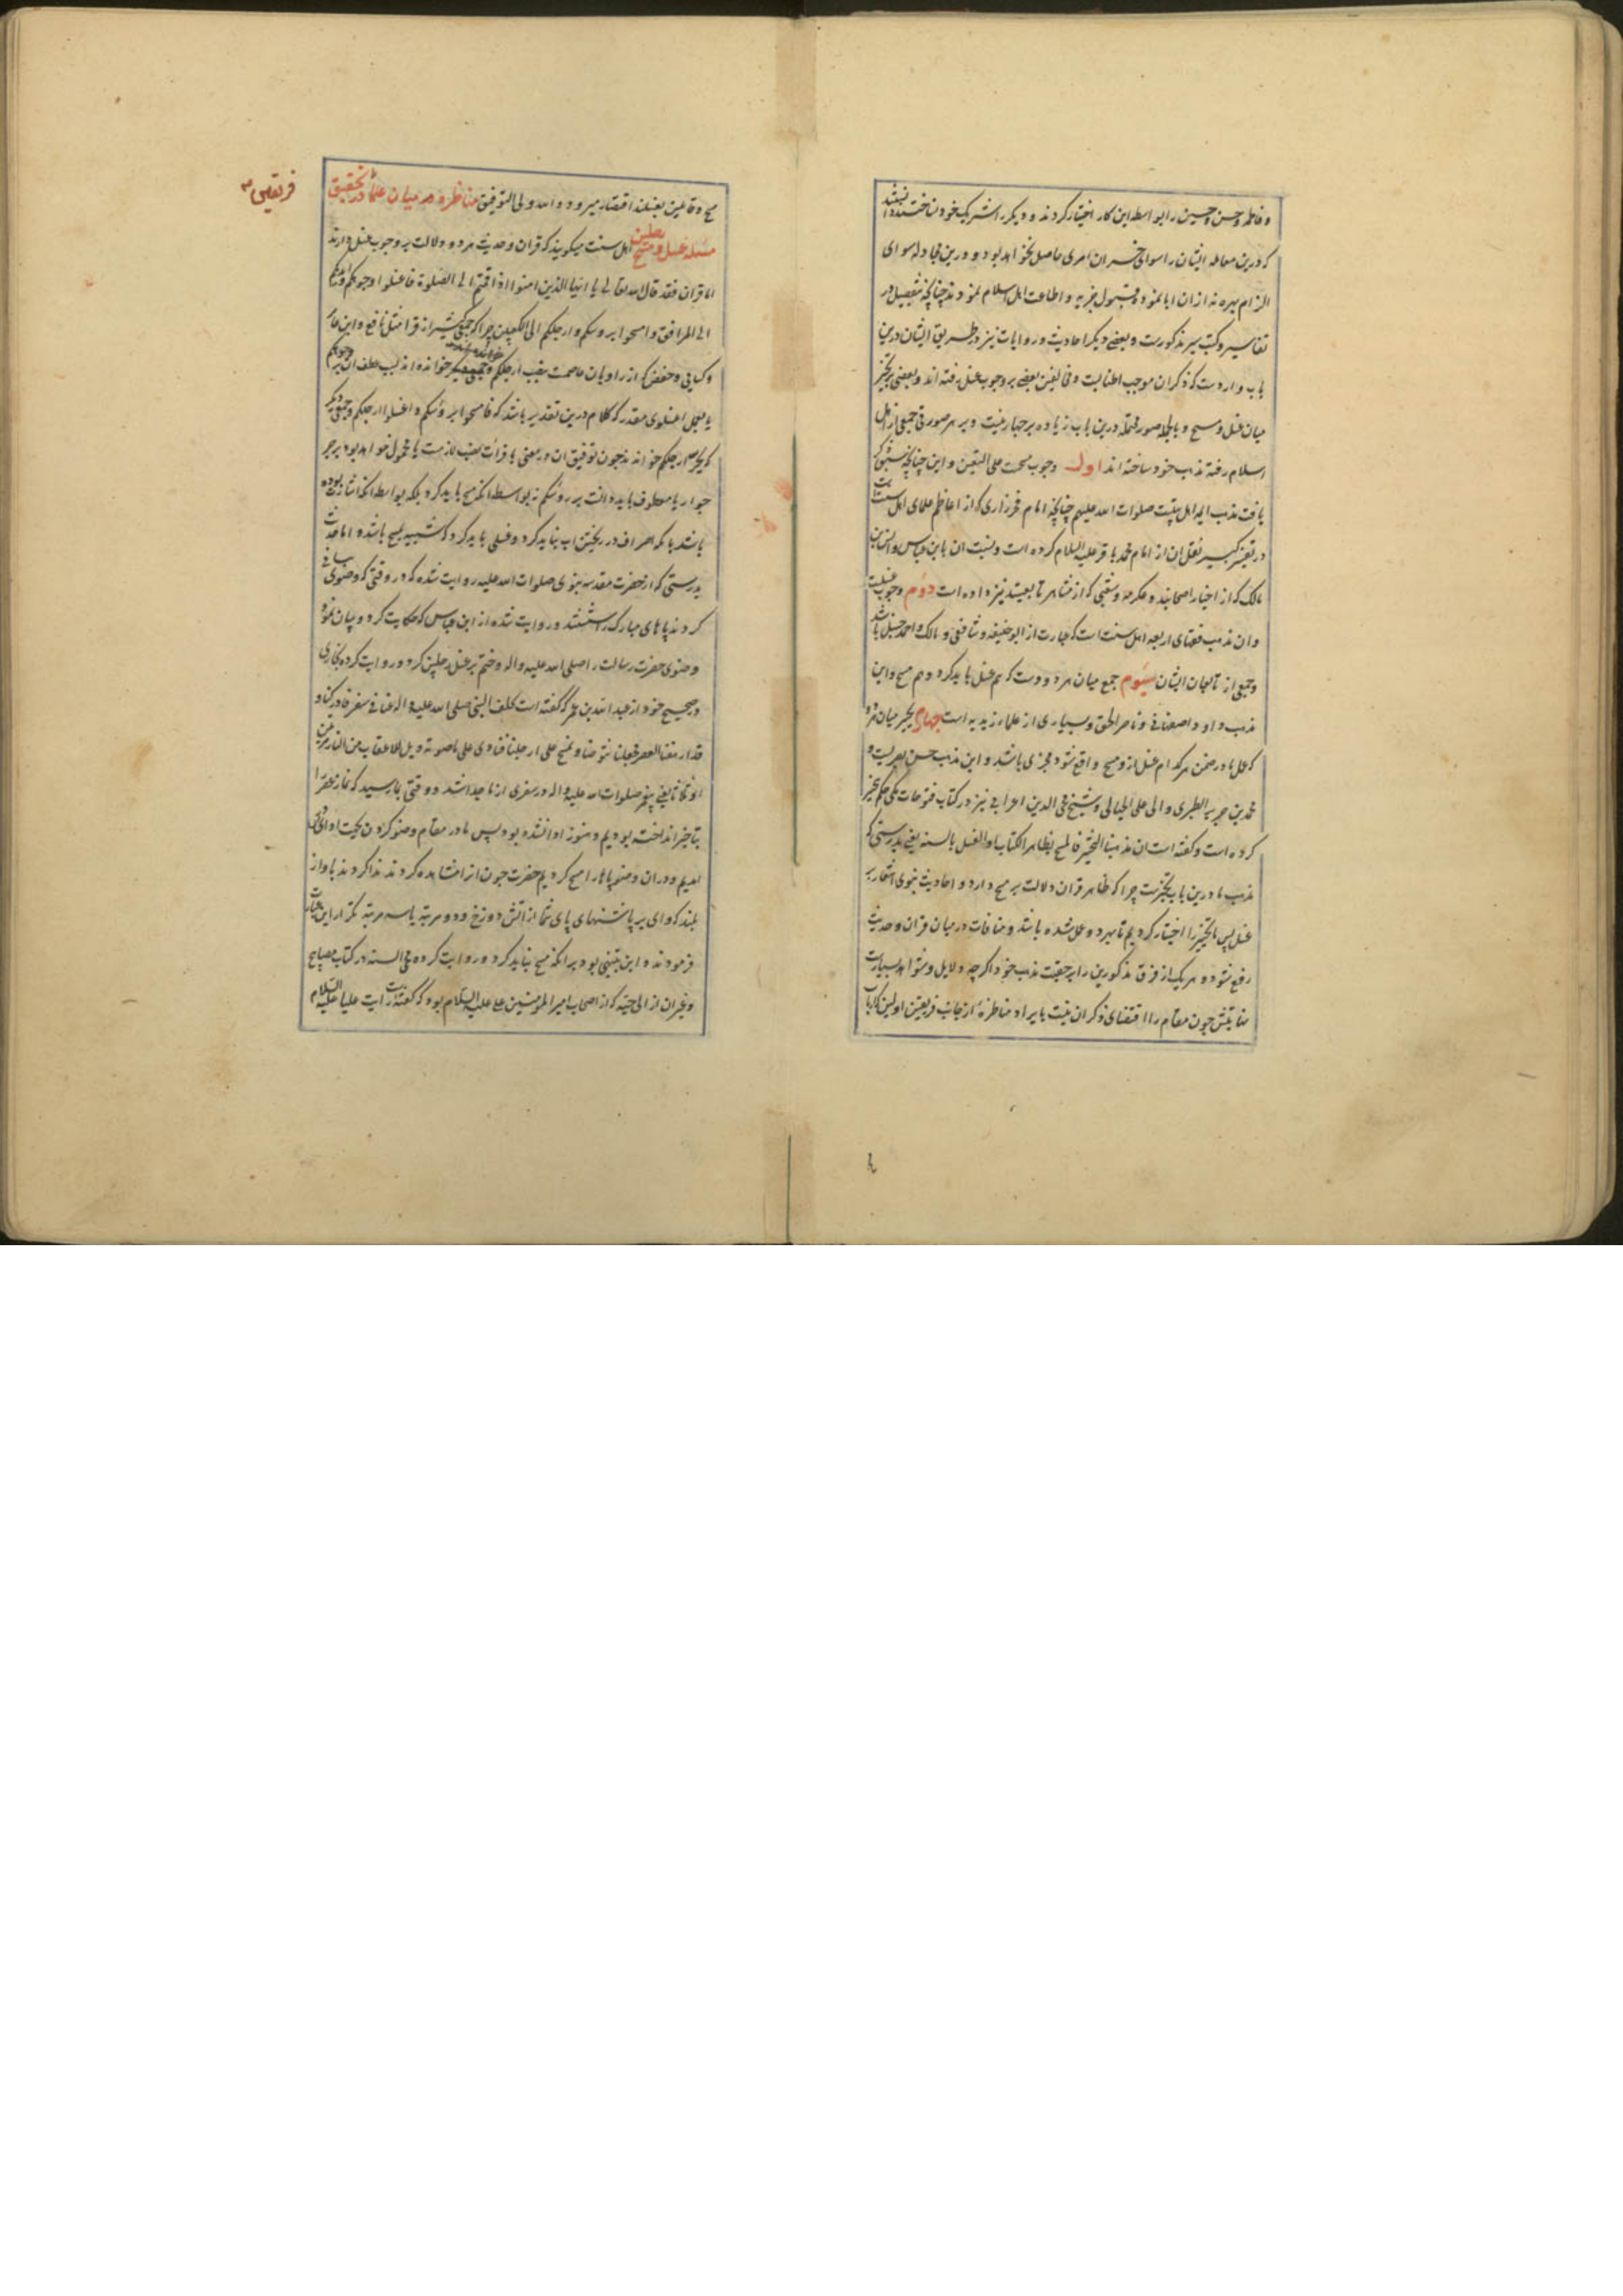 و فاطمه و حسن و حسین را بواسطه این کار اختیار کردند و دیگر را شریک خود نساختند دانستند
که درین معامله ایشان را سوای خسران امری حاصل نخواهد بود و درین مجادله سوای
الزام بهره نه از ان ابا نمودند و بقبول جزیه و اطاعت اهل اسلام نمودند چنانچه بتفصیل در
تفاسیر و کتب سیر مذکورست و بعضی دیگر احادیث و روایات نیز در طریق ایشان درین
باب واردست که ذکران موجب اطنابست و بعضی بر وجوب غسل رفته اند و بعضی بر تخیر
میان غسل و مسح و بالجمله صور محتمله درین باب زیاده بر چهار نیست و بر هر صورتی جمعی از اهل
اسلام رفته مذهب خود ساخته اند اول وجوب مسحست علی التعین و این چنانچه سبق ذکر
یافت مذهب ایمه اهل بیتست صلوات الله علیهم چنانچه امام فخر رازی که از اعاظم علمای اهل سنت است
در تفسیر کبیر نقل ان از امام محمد باقر علیه السلام کرده است و نسبت ان بابن عباس و انس بن
مالک که از اخیار اصحابند و عکرمه و شعبی که از مشاهیر تابعینند نیز داده است دوم وجوب غسلست
وان مذهب فقهای اربعه اهل سنت است که عبارت از ابو حنیفه و شافعی و مالک و احمد حنبل باشد
و جمعی از تابعان ایشان سیوم جمع میان هر دو وست که هم غسل باید کرد و هم مسح و این
مذهب داود اصفهانی و ناصر الحق و بسیاری از علماء زیدیه است چهارم تخیر میان هر دو
که عمل ما در ضمن هر کدام غسل از و مسح واقع شود مجزی باشد و این مذهب حسن بصریست و
محمد بن جریر الطبری و ابی علی الجبائی و شیخ محی الدین اعرابی نیز در کتاب فتوحات مکی حکم بتخیر
کرده است و گفته است ان مذهبنا التخیر فالمسح بظاهر الکتاب و الغسل بالسنه یعنی بدرستی که
مذهب ما درین باب تخیرست چرا که ظاهر قران دلالت بر مسح دارد و احادیث نبوی اشعار بر
غسل پس ما تخیر را اختیار کردیم تا بهر دو عمل شده باشد و منافات در میان قران و حدیث
رفع شود و هر یک از فرق مذکورین را بر حقیت مذهب خود اگر چه دلایل و شواهد بسیارست
چون مقام را اقتضای ذکر ان نیست بایراد مناظره از جانب فریقین اولین که ارباب
مسح و قائلین بغسلند اقتصار میرود و الله ولی التوفیق مناظره در میان علما در تحقیق
مسئله غسل و مسح رجلین اهل سنت میگویند که قران و حدیث هر دو دلالت بر وجوب غسل دارند
اما قران فقد قال الله تعالی یا ایها الذین امنوا اذا قمتم الی الصلوة فاغسلوا وجوهکم و ایدیکم
الی المرافق و امسحوا برؤسکم و ارجلکم الی الکعبین چرا که جمعی کثیر از قرا مثل نافع و ابن عامر
و کسایی و حفص که از راویان عاصمست بنصب ارجلکم خوانده اند بسبب عطف ان بر وجوهکم
یا بعمل اغسلوی مقدر که کلام درین تقدیر باشد که فامسحوا برؤسکم و اغسلوا ارجلکم و جمعی دیگر
که بجر ارجلکم خوانده اند چون توفیق ان در معنی با قرائت نصب لازمست یا محمول خواهد بود بر جر
جوار یا معطوف باید دانست بر رؤسکم نه بواسطه انکه مسح باید کرد بلکه بواسطه انکه اشارت بوده
باشد با که اسراف در ریختن اب نباید کرد و غسلی باید کرد که شبیه بمسح باشد و اما حدیث
بدرستی که از حضرت مقدسه نبوی صلوات الله علیه روایت شده که در وقتی که وضوی
کردند پاهای مبارک را شستند و روایت شده از ابن عباس که حکایت کرد و بیان نمود
وضوی حضرت رسالت را صلی الله علیه واله و ختم بر غسل رجلین کرد و روایت کرده بخاری
در صحیح خود از عبد الله بن عمر که گفته است تخلف النبی صلی الله علیه واله عنا فی سفر فادرکنا و
قد ارهقنا العصر فجعلنا نتوضأ و نمسح علی ارجلنا فنادی علی صوته ویل للاعقاب من النار مرتین
او ثلثا یعنی پیغمبر صلوات الله علیه واله در سفری از ما جدا شد و وقتی بما رسید که نماز عصر را
بتاخیر انداخته بودیم و هنوز ادا نشده بود پس ما در مقام وضو کردن بجهت ادای
امدیم و دران وضو پاها را مسح کردیم حضرت چون انرا مشاهده کردند ندا کردند باواز
بلند که وای بر پاشنهای پای شما از اتش دوزخ و دو مرتبه یا سه مرتبه تکرار این
فرمودند و این تنبیهی بود بر انکه مسح نباید کرد و روایت کرده محی السنه در کتاب مصابیح
و غیر ان از ابی حیه که از اصحاب امیر المؤمنین علی علیه السلام بود که گفته رایت علیا علیه السلام
فریقین